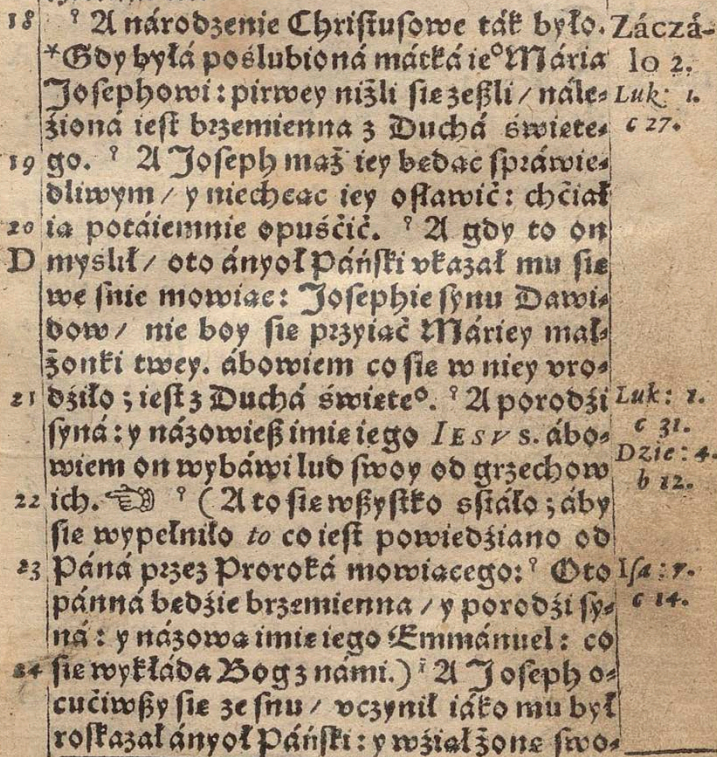 18 ⸮ A národzenie Christusowe ták było. Záczá-
*Gdy byłá poślubioná mátká ie° Mária lo 2.
Josephowi: pirwey niżli się zeßli / nále= Luk: 1.
żioná iest brzemienna z Duchá święte= c 27.
19 go. ⸮ A Joseph mąż iey będąc spráwie=
dliwym / y niechcąc iey osławić: chćiał
20 ią potáiemnie opuśćić. ⸮ A gdy to on
D myslił / oto ányoł Páński vkazał mu się
we śnie mowiąc: Josephie synu Dawi=
dow / nie boy się przyiąć Máriey mał=
żonki twey. ábowiem co się w niey vro=
21 dźiło ; iest z Duchá święte°. ⸮ A porodźi Luk: 1.
syná: y názowieß imię iego IESVS. ábo= c 31.
wiem on wybáwi lud swoy od grzechow Dzie: 4.
22 ich. ☜ ⸮ (A to się wßystko sstáło ; áby b 12.
się wypełniło to co iest powiedźiano od
23 Páná przez Proroká mowiącego: ⸮ Oto Isa: 7.
pánná będźie brzemienna / y porodźi sy= c 14.
ná: y názową imię iego Emmánuel: co
24 się wykłáda Bog z námi.) ⸮ A Joseph o=
cućiwßy się ze snu / vczynił iáko mu był
roskazał ányoł Páński: y wźiął żonę swo=